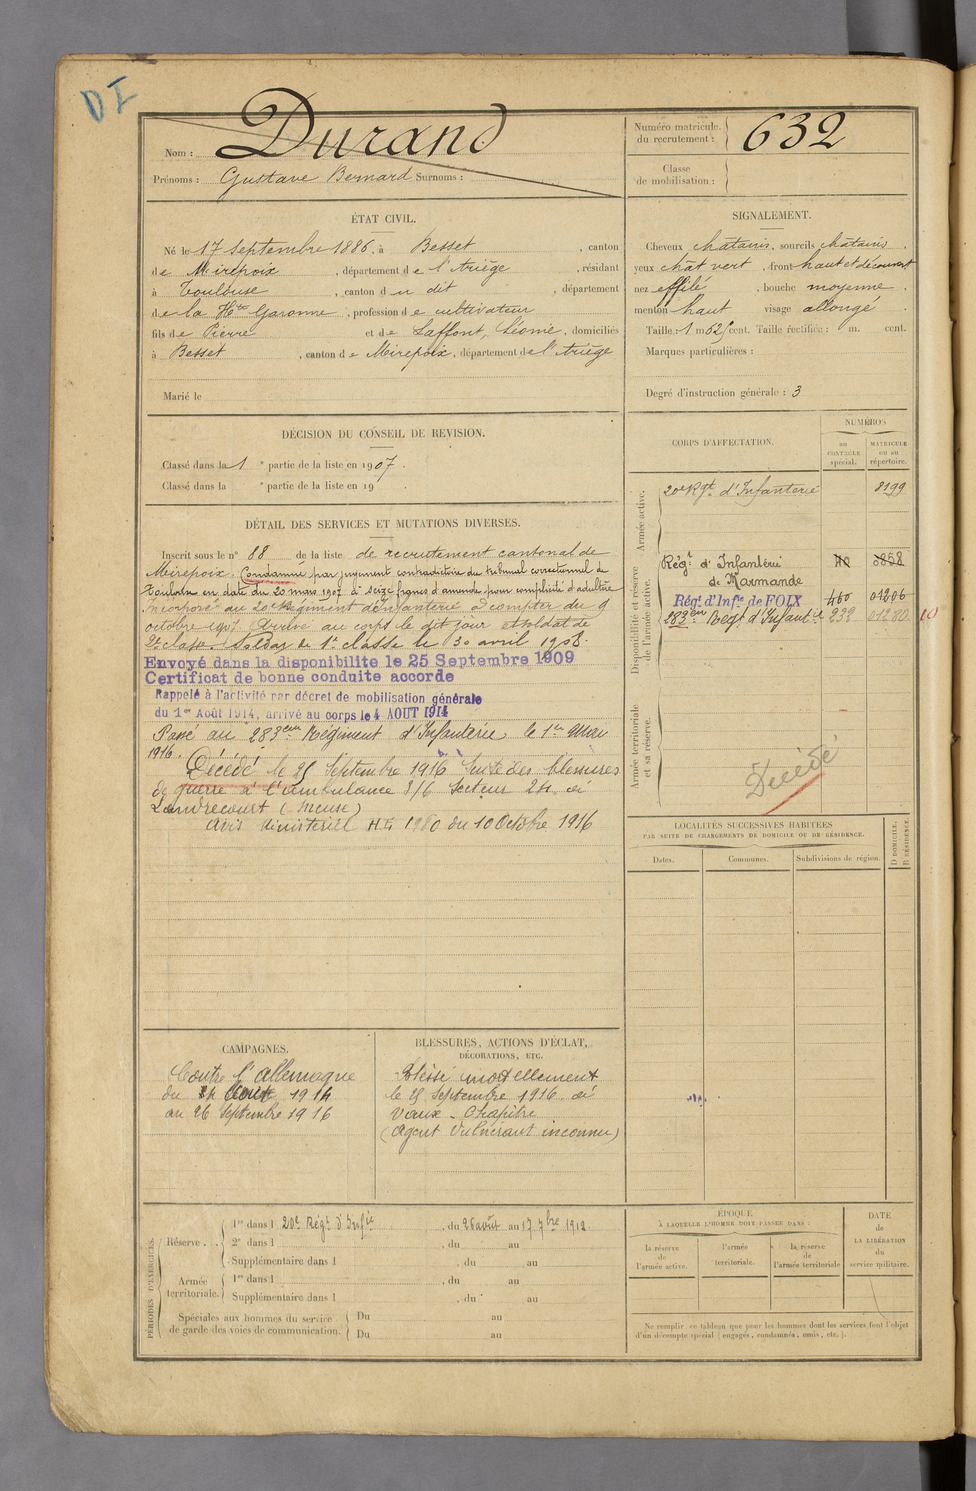 DI
Nom : Durand
Prénoms : Gustave Bernard Surnoms :
Numéro matricule du recrutement : 632
Classe de mobilisation :
ÉTAT CIVIL.
Né le 17 Septembre 1886, à Besset, canton
de Mirepoix, département de l'Ariège, résidant
à Toulouse, canton du dit, département
de la Hte Garonne, profession de cultivateur
fils de Pierre et de Laffont, Léonie, domiciliés
à Besset, canton de Mirepoix, département de l'Ariège
Marié le
SIGNALEMENT.
Cheveux châtains, sourcils châtains.
yeux chât vert, front haut et découvert
nez effilé, bouche moyenne.
menton haut visage allongé.
Taille : 1 m 625 cent. Taille rectifiée : m. cent.
Marques particulières :
Degré d'instruction générale : 3
DÉCISION DU CONSEIL DE REVISION.
Classé dans la 1e partie de la liste en 1907.
Classé dans la e partie de la liste en 19
DÉTAIL DES SERVICES ET MUTATIONS DIVERSES.
Inscrit sous le n° 88 de la liste de recrutement cantonal de
Mirepoix. Condamné par jugement contradictoire du tribunal correctionnel de
Toulouse en date du 20 mars 1907 à seize francs d'amende pour complicité d'adultère
Incorporé au 20e Régiment d'Infanterie à compter du 9
octobre 1907 Arrivé au corps le dit jour et soldat de
2e classe. Soldat de 1e classe le 30 avril 1908.
Envoyé dans la disponibilite le 25 Septembre 1909
Certificat de bonne conduite accorde
Rappelé à l'activité par décret de mobilisation générale
du 1er Août 1914, arrivé au corps le 4 AOUT 1914
Passé au 283ème Régiment d'Infanterie le 1er Mai
1916.
Décédé le 25 Septembre 1916 Suite des blessures
de guerre à l'ambulance 3/6 Secteur 24, à
Landrecourt (Meuse)
Avis Ministériel du 10 Octobre 1916
CORPS D'AFFECTATION.
NUMÉROS
au CONTRÔLE spécial.
MATRICULE ou au répertoire.
Armée active.
20e Rgt d'Infanterie 8199
Disponibilité et réserve de l'armée active.
Régt d'Infanterie
de Marmande
Régt d'Infie de FOIX 460 01206
283em Régt d'Infanterie 239 01280 10
Armée territoriale et sa réserve.
Décédé
LOCALITÉS SUCCESSIVES HABITÉES
PAR SUITE DE CHANGEMENTS DE DOMICILE OU DE RÉSIDENCE.
Dates. Communes. Subdivisions de région. D DOMICILE, R RÉSIDENCE.
CAMPAGNES.
Contre l'Allemagne
du 4 Août 1914
au 26 Septembre 1916
BLESSURES, ACTIONS D'ÉCLAT,
DÉCORATIONS, ETC.
Blessé mortellement
le 25 Septembre 1916 à
Vaux-Chapitre
(Agent Vulnérant inconnu)
PÉRIODES D'EXERCICES.
Réserve.
1re dans l 20e Régt d'Infie, du 26 août au 17 7bre 1912.
2e dans l, du au
Supplémentaire dans l, du au
Armée territoriale.
1re dans l, du au
Supplémentaire dans l, du au
Spéciales aux hommes du service
de garde des voies de communication.
Du au
Du au
ÉPOQUE
À LAQUELLE L'HOMME DOIT PASSER DANS :
la réserve de l'armée active.
l'armée territoriale.
la réserve de l'armée territoriale
DATE de LA LIBÉRATION du service militaire.
Ne remplir ce tableau que pour les hommes dont les services font l'objet
d'un décompte spécial (engagés, condamnés, omis, etc.).